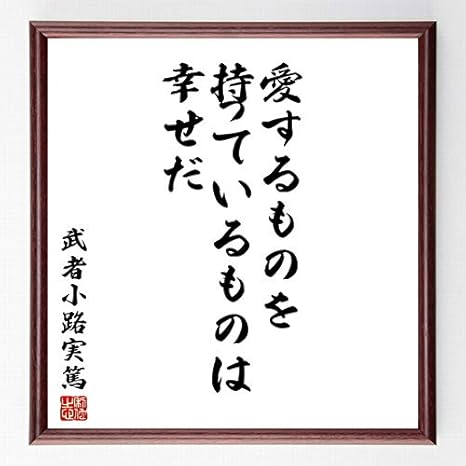 愛するものを
持っているものは
幸せだ
武者小路実篤